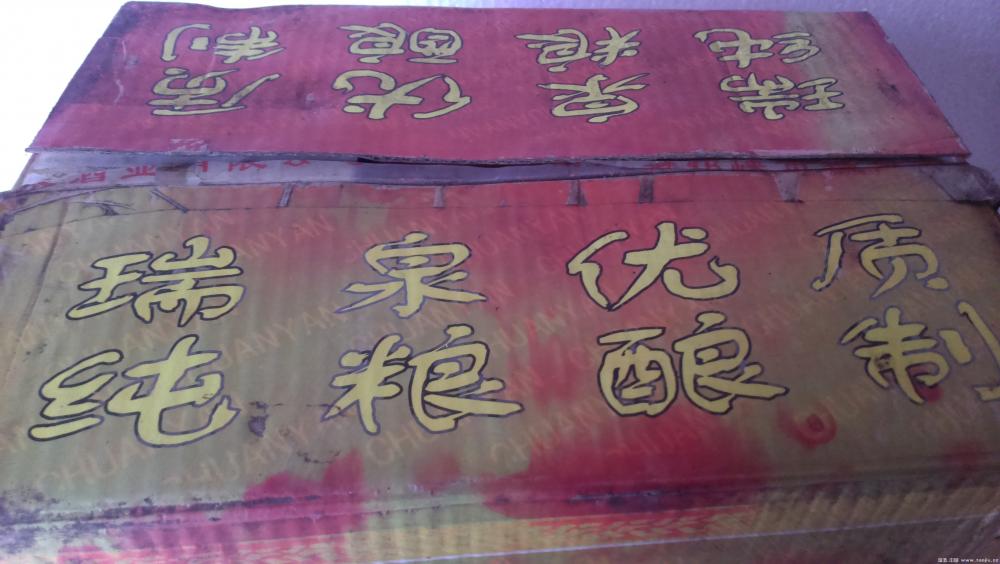 瑞泉优质
纯粮酿制
瑞泉优质
纯粮酿制
CHUANYAN
CHUANYAN
CHUANYAN
CHUANYAN
CHUANYAN